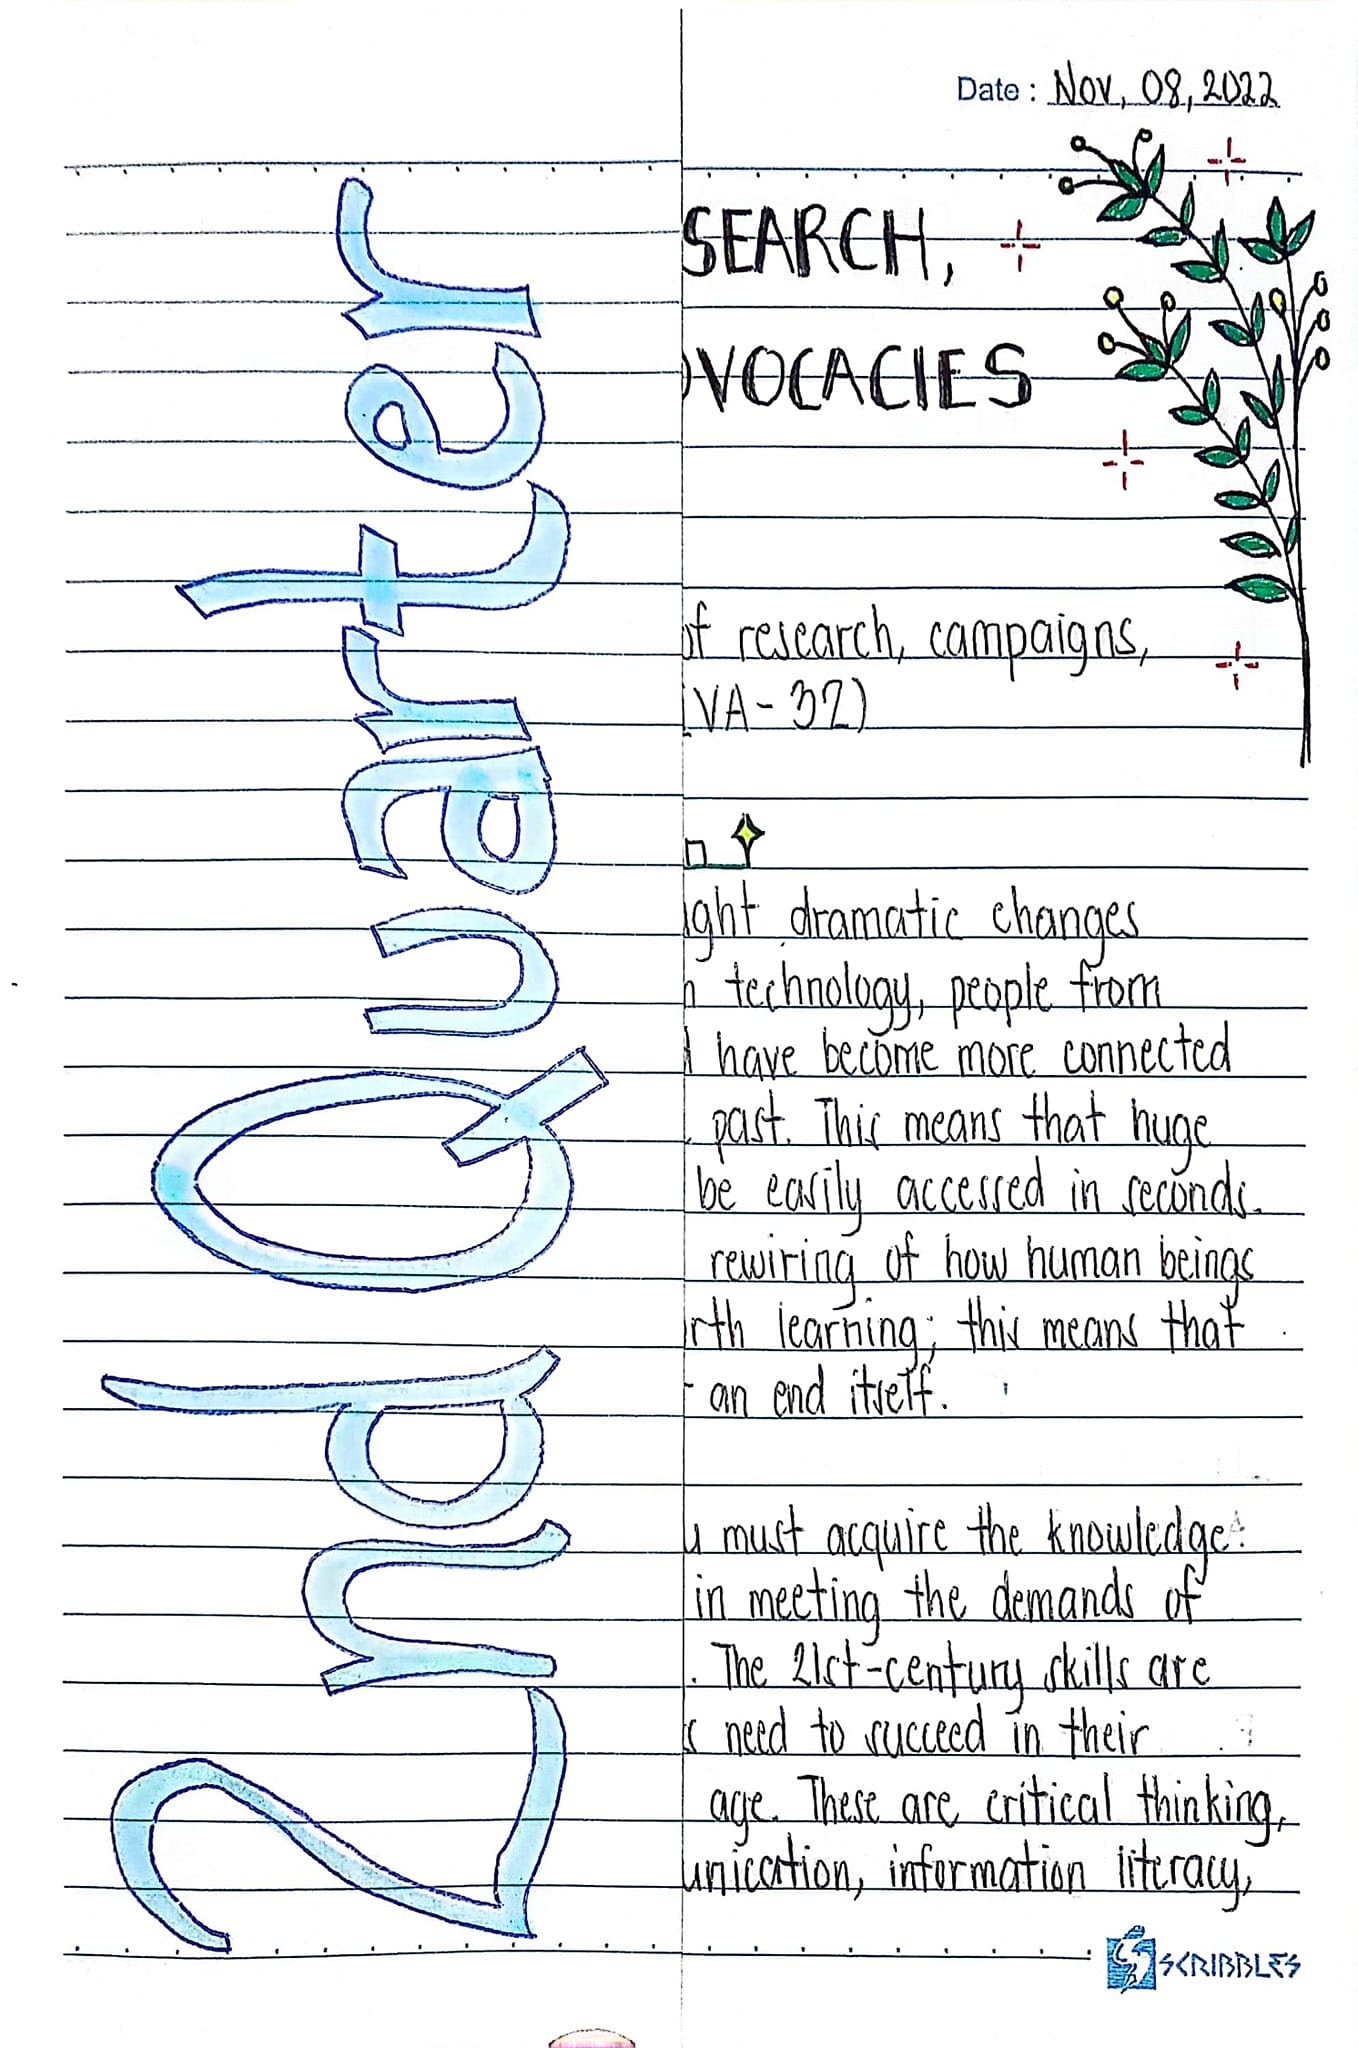 2nd Quarter
Date : Nov, 08, 2022
SEARCH,
VOCACIES
of research, campaigns,
VA-32)
n
ght dramatic changes
n technology, people from
have become more connected
past. This means that huge
be easily accessed in seconds.
rewiring of how human beings
rth learning; this means that
an end itself.
u must acquire the knowledge
in meeting the demands of
. The 21st-century skills are
s need to succeed in their
age. These are critical thinking,
unication, information literacy,
SCRIBBLES